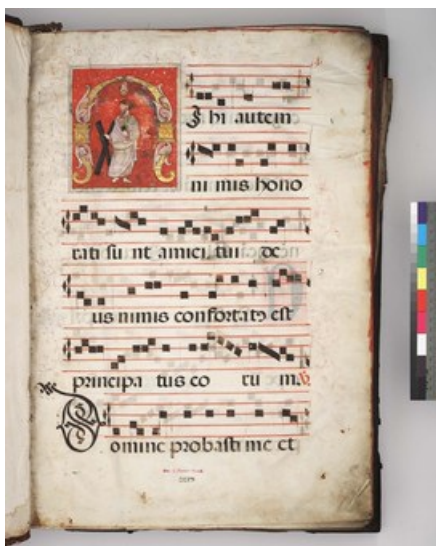 M ihi autem
ni mis hono
rati su nt amici tui de
us nimis confortatꝰ est
principa tus eo ru m. V.
Domine probasti me et